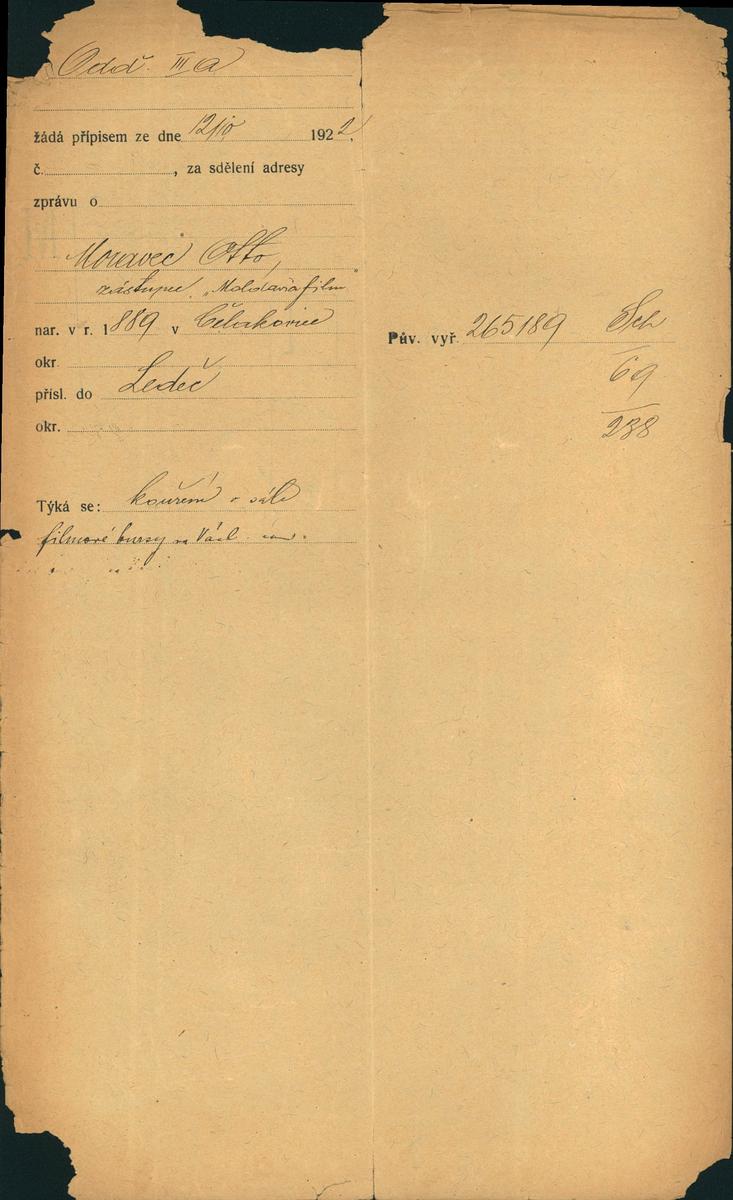 Odd. III A
žádá přípisem ze dne 12/10 1922,
č. , za sdělení adresy
zprávu o
Moravec Otto,
zástupce „Moldavia film"
nar. v r. 1889 v Čelakovice
okr.
přísl. do Ledeč
okr.
Týká se: kouření v sále
filmové bursy na Václ. nám.
Pův. vyř. 265189 Sch
69
238